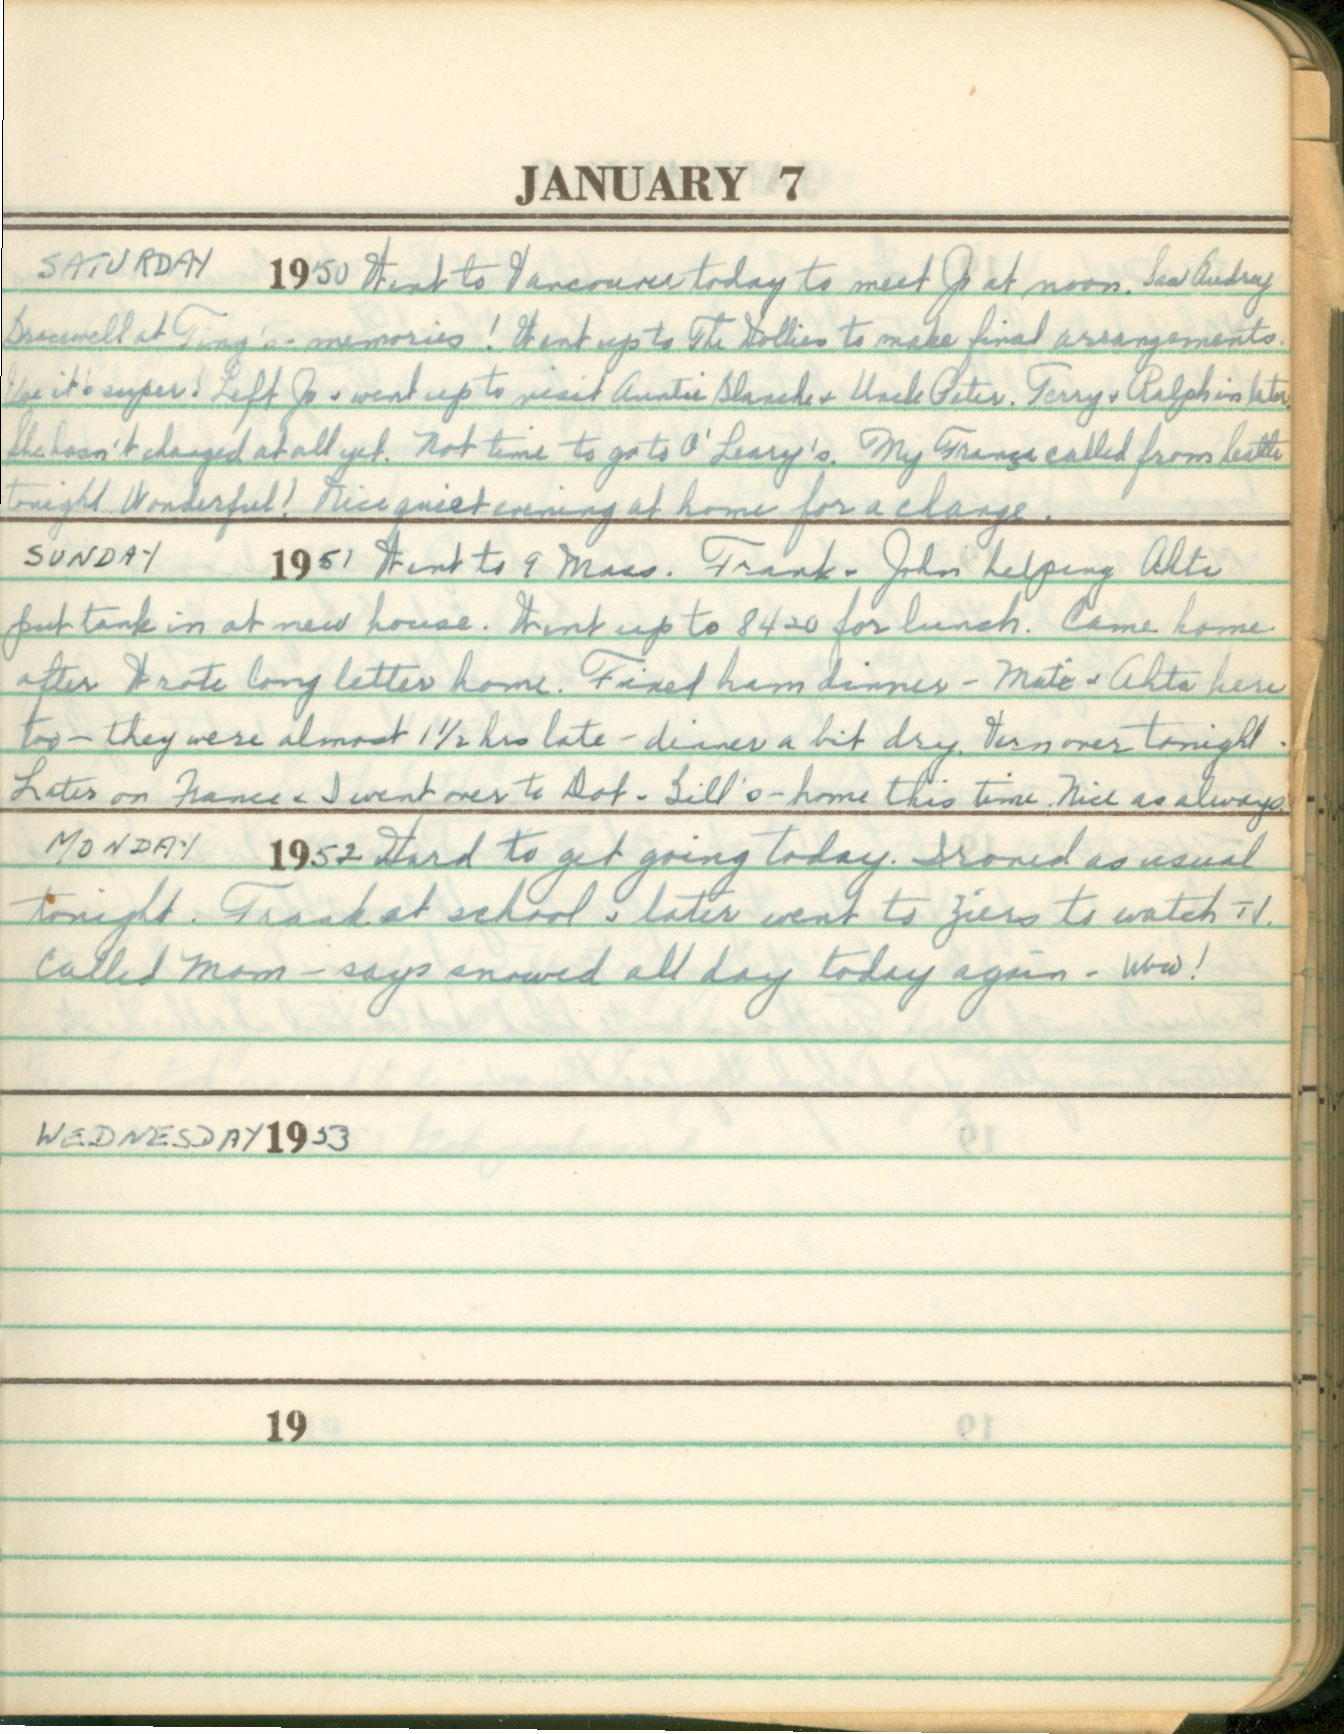 JANUARY 7
SATURDAY 1950 Went to Vancouver today to meet Jo at noon. Saw Audrey
Bracewell at Ting's - memories! Went up to The Hollies to make final arrangements.
it's super! Left Jo & went up to visit Auntie Blanche & Uncle Peter. Terry & Ralph in later.
She hasn't changed at all yet. Not time to go to O'Leary's. My France called from Seattle
tonight Wonderful! Nice quiet evening at home for a change.
SUNDAY 1951 Went to 9 Mass. Frank & John helping Ahti
put tank in at new house. Went up to 8420 for lunch. Came home
after Wrote long letter home. Fixed ham dinner - & here
too - they were almost 1 1/2 hrs late - dinner a bit dry. Vern over tonight.
Later on France & I went over to Dot & Bill's - home this time. Nice as always.
MONDAY 1952 Hard to get going today. Ironed as usual
tonight. Frank at school & later went to Ziers to watch TV.
Called Mom - says snowed all day today again - wow!
WEDNESDAY 1953
19